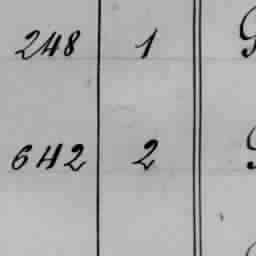 248 1
642 2